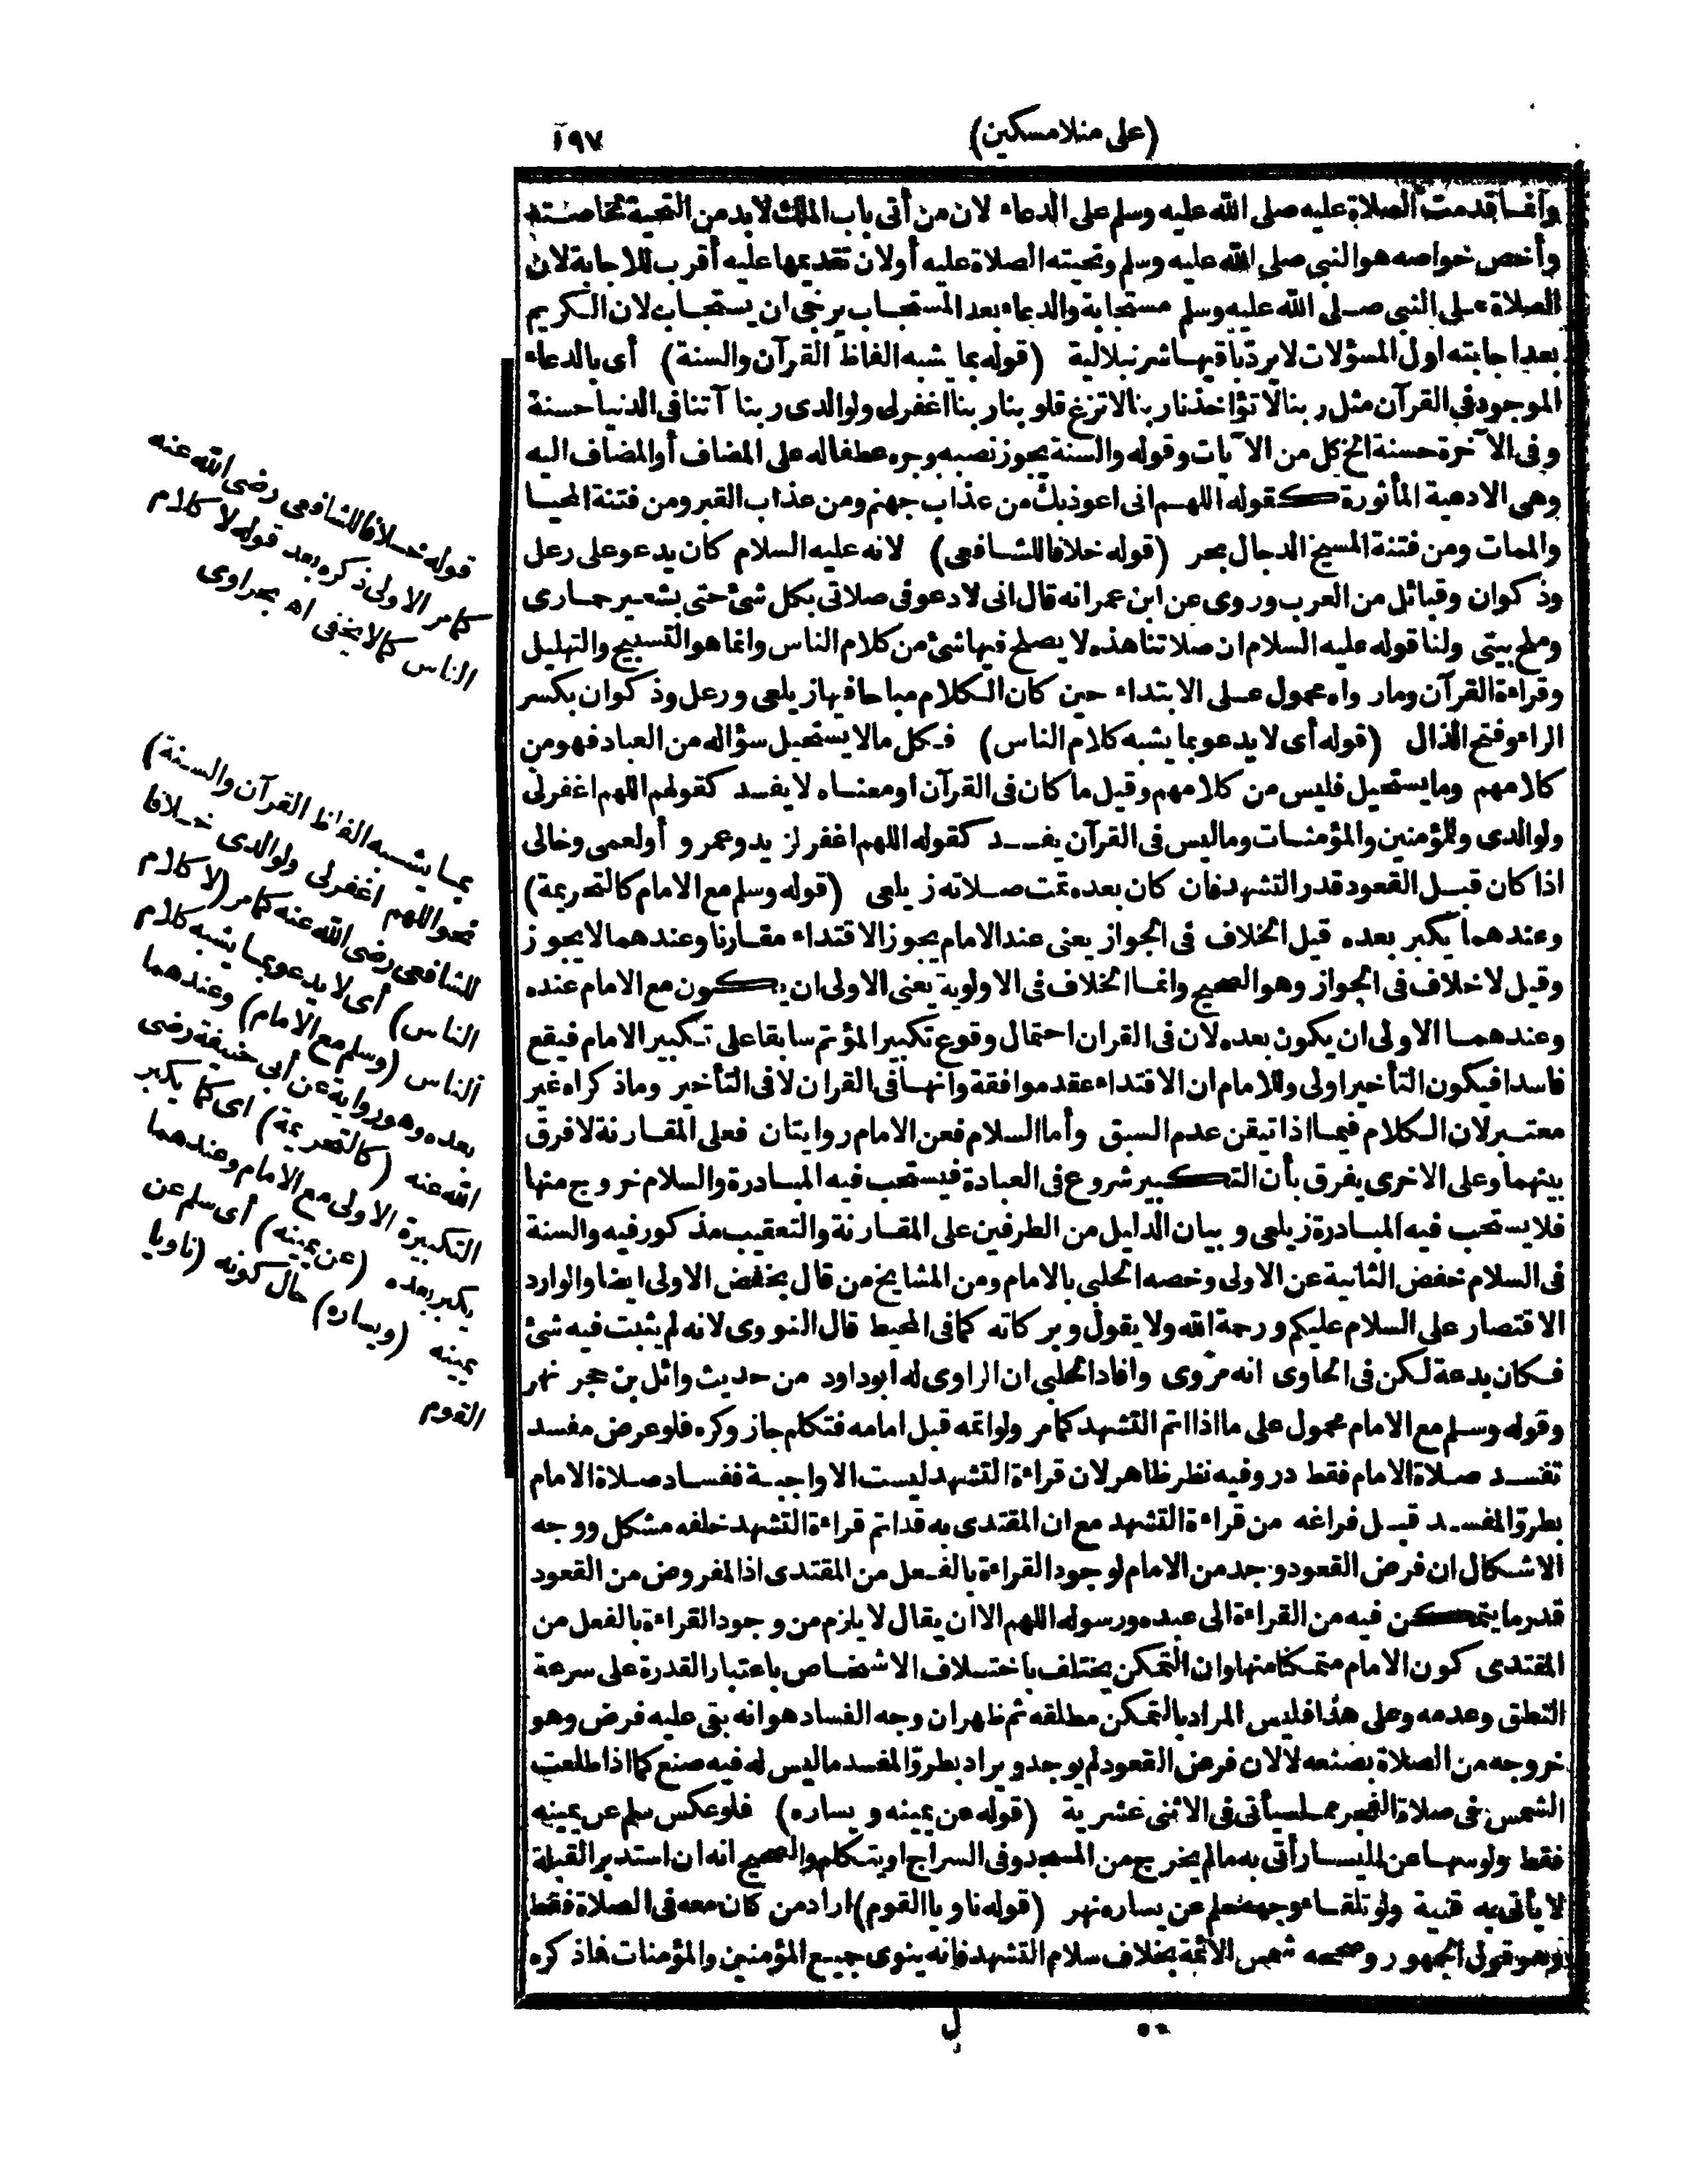 (على منلا مسكين)
١٩٧
وانما قدمت الصلاة عليه صلى الله عليه وسلم على الدعاء لان من أتى باب الملك لا بد من التحية لخاصته
وأخص خواصه هو النبى صلى الله عليه وسلم وتحيته الصلاة عليه أولان تقديمها عليه أقرب للاجابة لان
الصلاة على النبى صلى الله عليه وسلم مستجابة والدعاء بعد المستجاب يرجى ان يستجاب لان الكريم
بعد اجابته اول المسؤلات لا يرد باقيها شرنبلالية (قوله بما شبه الفاظ القرآن والسنة) أى بالدعاء
الموجود فى القرآن مثل ربنا لا تؤاخذنا ربنا لا تزغ قلوبنا ربنا اغفرلى ولوالدى ربنا آتنا فى الدنيا حسنة
وفى الآخرة حسنة الخ كل من الآيات وقوله والسنة يجوز نصبه وجره عطفا له على المضاف أوالمضاف اليه
وهى الادعية المأثورة كقوله اللهم انى اعوذ بك من عذاب جهنم ومن عذاب القبر ومن فتنة المحيا
والممات ومن فتنة المسيح الدجال بحر (قوله خلافا للشافعى) لانه عليه السلام كان يدعو على رعل
وذكوان وقبائل من العرب وروى عن ابن عمر انه قال انى لادعو فى صلاتى بكل شئ حتى بشعير حمارى
وملح بيتى ولنا قوله عليه السلام ان صلاتنا هذه لا يصلح فيها شئ من كلام الناس وانما هو التسبيح والتهليل
وقراءة القرآن وما رواه محمول على الابتداء حين كان الكلام مباحا فيها زيلعى ورعل وذكوان بكسر
الراء وفتح الذال (قوله أى لا يدعو بما يشبه كلام الناس) فكل مالا يستحيل سؤاله من العباد فهو من
كلامهم وما يستحيل فليس من كلامهم وقيل ما كان فى القرآن او معناه لا يفسد كقولهم اللهم اغفرلى
ولوالدى وللمؤمنين والمؤمنات وما ليس فى القرآن يفسد كقوله اللهم اغفر لزيد وعمرو أولعمى وخالى
اذا كان قبل القعود قدر التشهد فان كان بعده تمت صلاته زيلعى (قوله وسلم مع الامام كالتحريمة)
وعندهما يكبر بعده قيل الخلاف فى الجواز يعنى عند الامام يجوز الاقتداء مقارنا وعندهما لا يجوز
وقيل لا خلاف فى الجواز وهو الصحيح وانما الخلاف فى الاولوية يعنى الاولى ان يكون مع الامام عنده
وعندهما الاولى ان يكون بعده لان فى القران احتمال وقوع تكبير المؤتم سابقا على تكبير الامام فيقع
فاسدا فيكون التأخير اولى وللامام ان الاقتداء عقد موافقة وانها فى القران لا فى التأخير وماذكراه غير
معتبر لان الكلام فيما اذا تيقن عدم السبق وأما السلام فعن الامام روايتان فعلى المقارنة لا فرق
بينهما وعلى الاخرى يفرق بأن التكبير شروع فى العبادة فيستحب فيه المبادرة والسلام خروج منها
فلا يستحب فيه المبادرة زيلعى وبيان الدليل من الطرفين على المقارنة والتعقيب مذكور فيه والسنة
فى السلام خفض الثانية عن الاولى وخصه الحلبى بالامام ومن المشايخ من قال بخفض الاولى ايضا والوارد
الاقتصار على السلام عليكم ورحمة الله ولا يقول وبركاته كما فى المحيط قال النووى لانه لم يثبت فيه شئ
فكان بدعة لكن فى الحاوى انه مروى وافاد الحلبى ان الراوى له ابوداود من حديث وائل بن حجر نهر
وقوله وسلم مع الامام محمول على ما اذا اتم التشهد كمامر ولو اتمه قبل امامه فتكلم جاز وكره فلو عرض مفسد
تفسد صلاة الامام فقط در وفيه نظر ظاهر لان قراءة التشهد ليست الا واجبة ففساد صلاة الامام
بطرو المفسد قبل فراغه من قراءة التشهد مع ان المقتدى به قد اتم قراءة التشهد خلفه مشكل ووجه
الاشكال ان فرض القعود وجد من الامام لوجود القراءة بالفعل من المقتدى اذ المفروض من القعود
قدر ما يتمكن فيه من القراءة الى عبده ورسوله اللهم الا ان يقال لا يلزم من وجود القراءة بالفعل من
المقتدى كون الامام متمكنا منها وان التمكن يختلف باختلاف الاشخاص باعتبار القدرة على سرعة
النطق وعدمه وعلى هذا فليس المراد بالتمكن مطلقه ثم ظهران وجه الفساد هو انه بقى عليه فرض وهو
خروجه من الصلاة بصنعه لا لان فرض القعود لم يوجد ويراد بطرو المفسد ما ليس له فيه صنع كما اذا طلعت
الشمس فى صلاة الفجر مما سيأتى فى الاثنى عشرية (قوله عن يمينه ويساره) فلو عكس سلم عن يمينه
فقط ولو سها عن اليسار أتى به مالم يخرج من المسجد وفى السراج او يتكلم والصحيح انه ان استدبر القبلة
لا يأتى به قنية ولو تلقاء وجهه سلم عن يساره نهر (قوله ناويا القوم) اراد من كان معه فى الصلاة فقط
وهو قول الجمهور وصححه شمس الأئمة بخلاف سلام التشهد فانه ينوى جميع المؤمنين والمؤمنات فما ذكره
قوله خلافا للشافعى رضى الله عنه
كمامر الاولى ذكره بعد قوله لا كلام
الناس كمالا يخفى اه بحراوى
بما يشبه الفاظ القرآن والسنة)
نحو اللهم اغفرلى ولوالدى خلافا
للشافعى رضى الله عنه كمامر (لا كلام
الناس) أى لا يدعو بما يشبه كلام
الناس (وسلم مع الامام) وعندهما
بعده وهو رواية عن أبى حنيفة رضى
الله عنه (كالتحريمة) اى كما يكبر
التكبيرة الاولى مع الامام وعندهما
يكبر بعده (عن يمينه) أى سلم عن
يمينه (ويساره) حال كونه (ناويا
القوم
ل